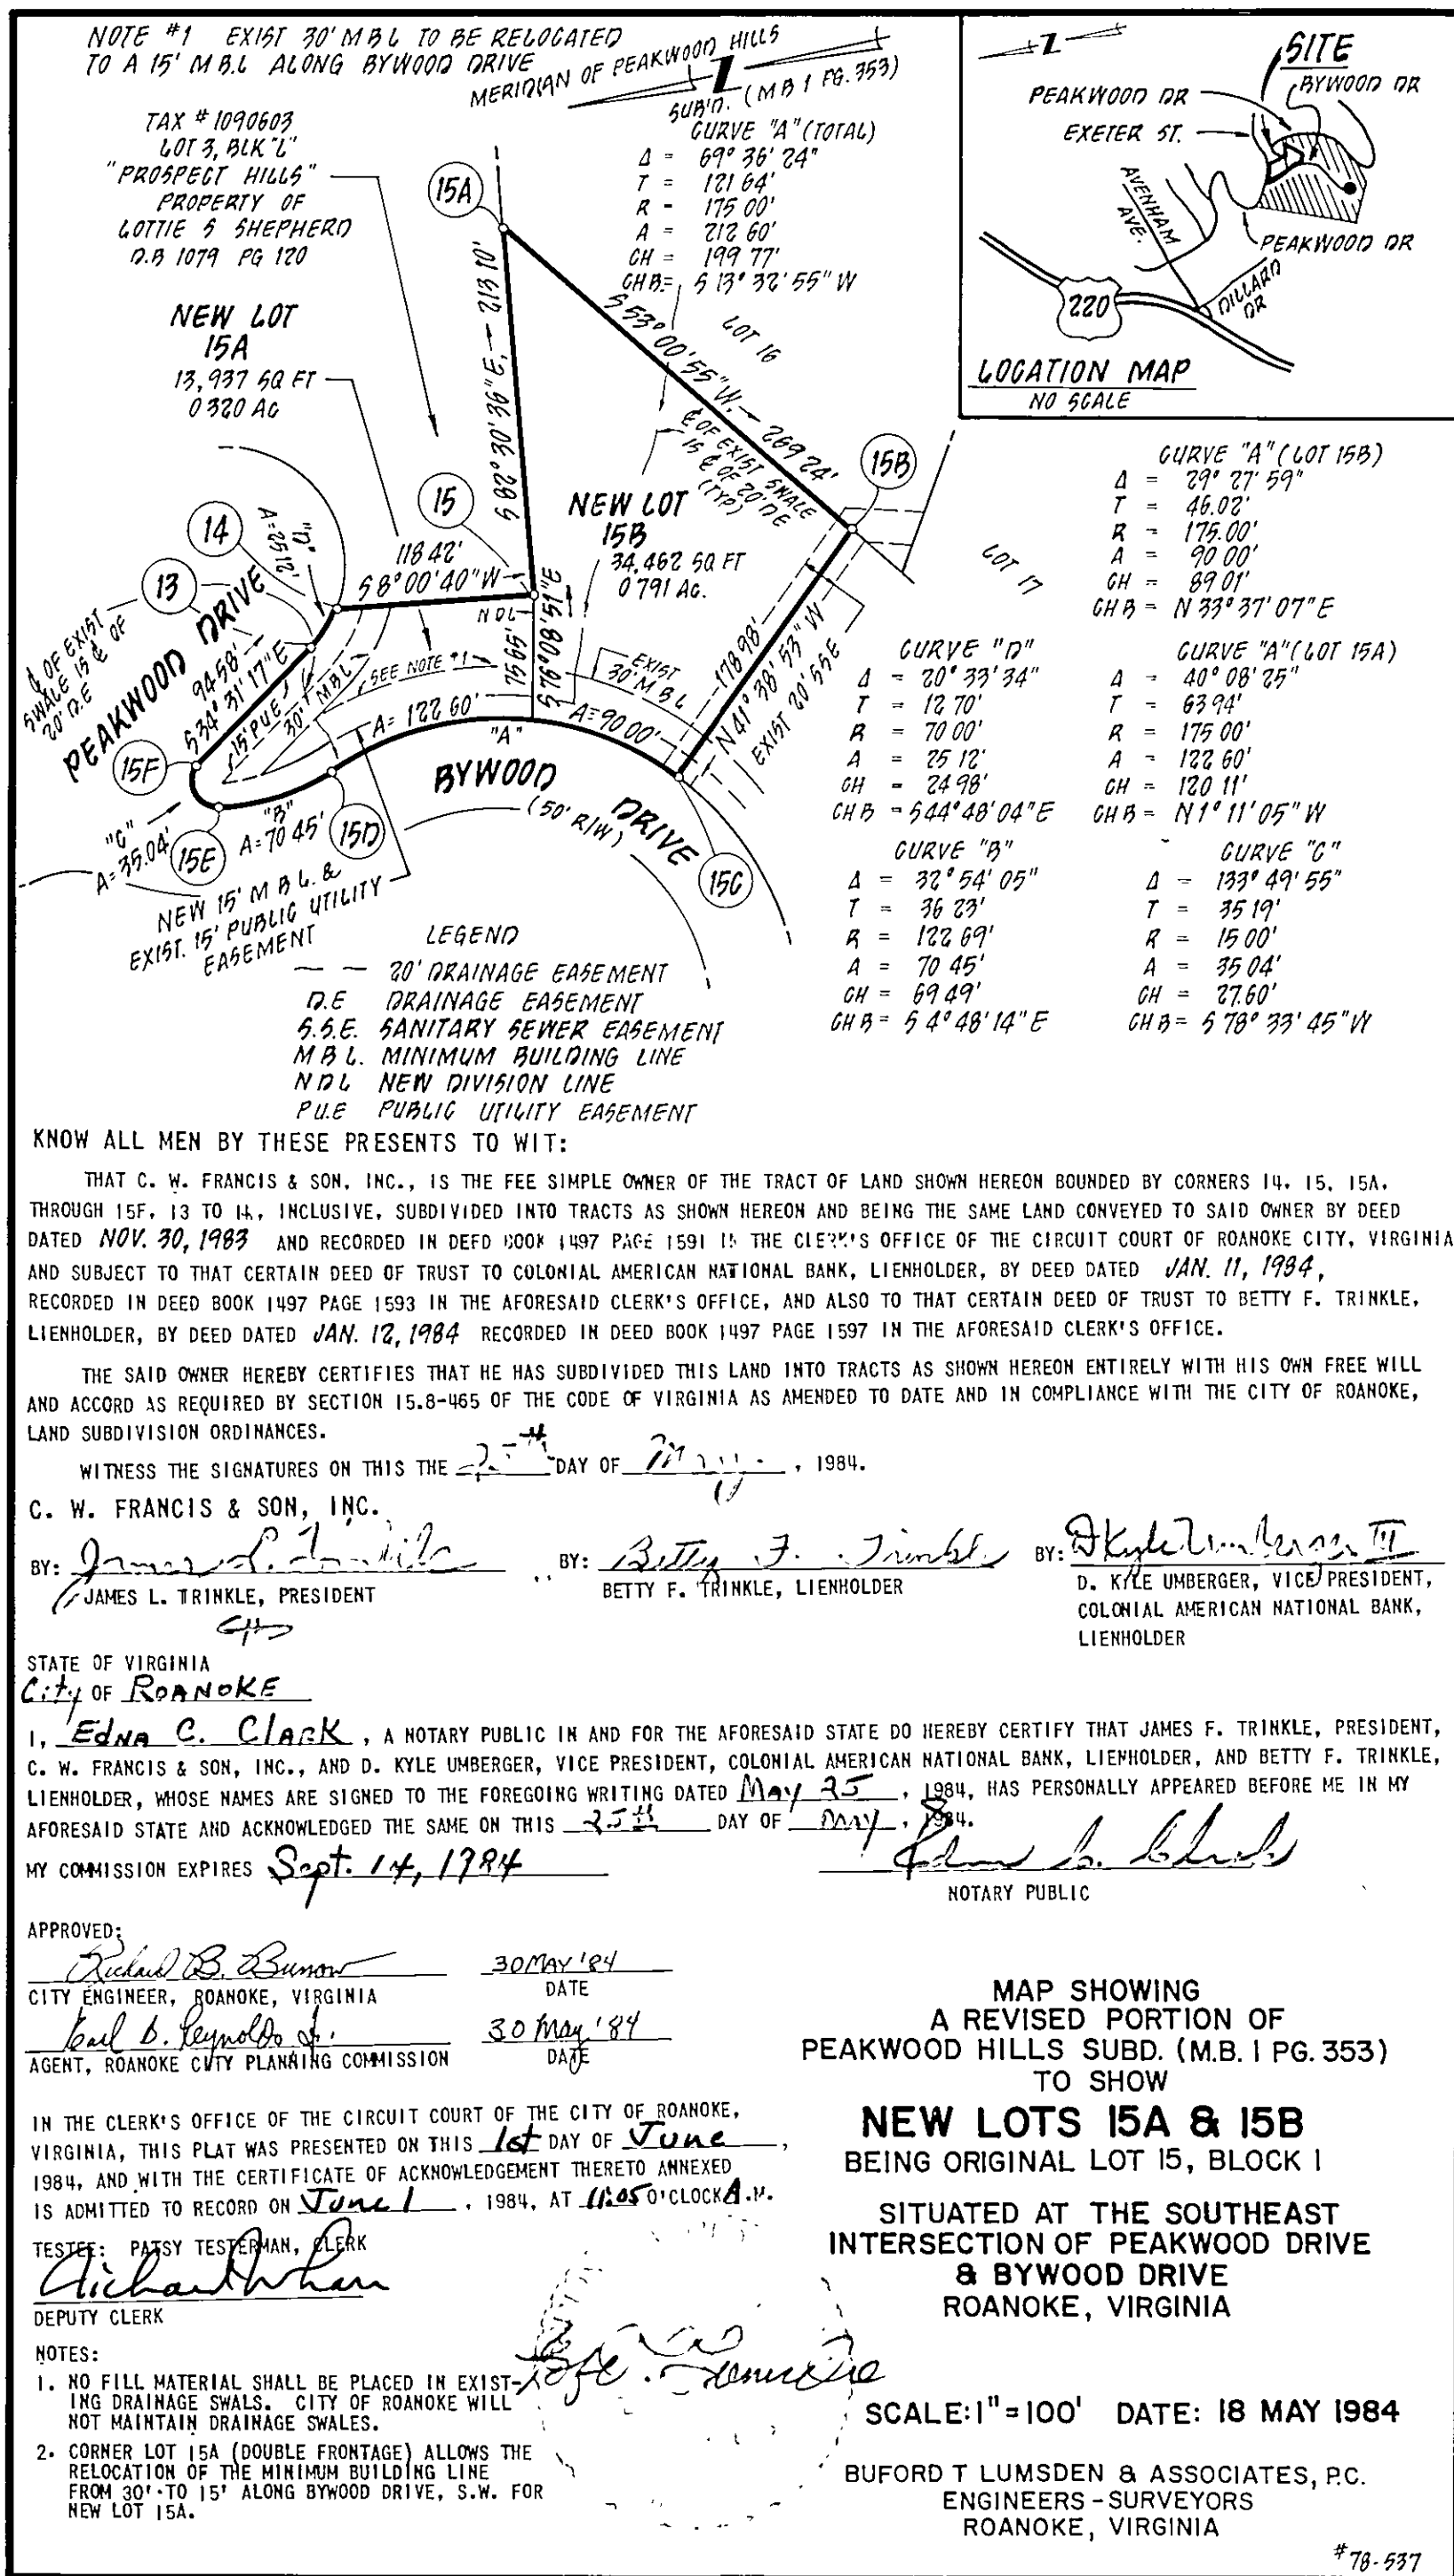 NOTE #1 EXIST 30' M B L TO BE RELOCATED
TO A 15' M B.L ALONG BYWOOD DRIVE
MERIDIAN OF PEAKWOOD HILLS
SUB'D. (M B 1 PG. 353)
TAX # 1090603
LOT 3, BLK "L"
"PROSPECT HILLS"
PROPERTY OF
LOTTIE S SHEPHERD
D.B 1079 PG 120
NEW LOT
15A
13,937 SQ FT
0 320 AC
CURVE "A" (TOTAL)
Δ = 69° 36' 24"
T = 121 64'
R - 175 00'
A = 212 60'
CH = 199 77'
CHB= S 13° 32' 55" W
SITE
BYWOOD DR
PEAKWOOD DR
EXETER ST.
AVENHAM
AVE.
PEAKWOOD DR
DILLARD
DR
220
LOCATION MAP
NO SCALE
15A
S 82° 30' 36" E, - 213 10'
S 53° 00' 55" W. - 269 24'
LOT 16
₵ OF EXIST SWALE
15 ₵ OF 20' D E
(TYP)
15B
15
NEW LOT
15B
34,462 SQ FT
0 791 AC.
LOT 17
14
13
"D"
A=25 12'
118 42'
S 8° 00' 40" W
N D L
₵ OF EXIST
SWALE 15 ₵ OF
20' D.E
PEAKWOOD DRIVE
94 58'
S 34° 31' 17" E
15' PUE
30' MBL
SEE NOTE #1
75 65'
S 76° 08' 51" E
EXIST
30' M B L
178 98'
N 41° 38' 53" W
EXIST 20' SSE
A= 122 60'
"A"
A=90 00'
15F
BYWOOD
DRIVE
(50' R/W)
"C"
A=35.04'
15E
"B"
A=70 45'
15D
15C
NEW 15' M B L. &
EXIST. 15' PUBLIC UTILITY
EASEMENT
CURVE "A" (LOT 15B)
Δ = 29° 27' 59"
T = 46.02'
R = 175.00'
A = 90 00'
CH = 89 01'
CH B = N 33° 37' 07" E
CURVE "D"
Δ = 20° 33' 34"
T = 12 70'
R = 70 00'
A = 25 12'
CH = 24 98'
CH B = S44° 48' 04" E
CURVE "A" (LOT 15A)
Δ = 40° 08' 25"
T = 63 94'
R = 175 00'
A = 122 60'
CH = 120 11'
CH B = N 1° 11' 05" W
CURVE "B"
Δ = 32° 54' 05"
T = 36 23'
R = 122 69'
A = 70 45'
CH = 69 49'
CH B = S 4° 48' 14" E
CURVE "C"
Δ = 133° 49' 55"
T = 35 19'
R = 15 00'
A = 35 04'
CH = 27.60'
CH B = S 78° 33' 45" W
LEGEND
— — 20' DRAINAGE EASEMENT
D.E DRAINAGE EASEMENT
S.S.E. SANITARY SEWER EASEMENT
M B L. MINIMUM BUILDING LINE
N D L NEW DIVISION LINE
P U.E PUBLIC UTILITY EASEMENT
KNOW ALL MEN BY THESE PRESENTS TO WIT:
THAT C. W. FRANCIS & SON, INC., IS THE FEE SIMPLE OWNER OF THE TRACT OF LAND SHOWN HEREON BOUNDED BY CORNERS 14, 15, 15A,
THROUGH 15F, 13 TO 14, INCLUSIVE, SUBDIVIDED INTO TRACTS AS SHOWN HEREON AND BEING THE SAME LAND CONVEYED TO SAID OWNER BY DEED
DATED NOV. 30, 1983 AND RECORDED IN DEED BOOK 1497 PAGE 1591 IN THE CLERK'S OFFICE OF THE CIRCUIT COURT OF ROANOKE CITY, VIRGINIA
AND SUBJECT TO THAT CERTAIN DEED OF TRUST TO COLONIAL AMERICAN NATIONAL BANK, LIENHOLDER, BY DEED DATED JAN. 11, 1984,
RECORDED IN DEED BOOK 1497 PAGE 1593 IN THE AFORESAID CLERK'S OFFICE, AND ALSO TO THAT CERTAIN DEED OF TRUST TO BETTY F. TRINKLE,
LIENHOLDER, BY DEED DATED JAN. 12, 1984 RECORDED IN DEED BOOK 1497 PAGE 1597 IN THE AFORESAID CLERK'S OFFICE.
THE SAID OWNER HEREBY CERTIFIES THAT HE HAS SUBDIVIDED THIS LAND INTO TRACTS AS SHOWN HEREON ENTIRELY WITH HIS OWN FREE WILL
AND ACCORD AS REQUIRED BY SECTION 15.8-465 OF THE CODE OF VIRGINIA AS AMENDED TO DATE AND IN COMPLIANCE WITH THE CITY OF ROANOKE,
LAND SUBDIVISION ORDINANCES.
WITNESS THE SIGNATURES ON THIS THE 25th DAY OF May, 1984.
C. W. FRANCIS & SON, INC.
BY: James L. Trinkle BY: Betty F. Trinkle BY: D Kyle Umberger III
JAMES L. TRINKLE, PRESIDENT
BETTY F. TRINKLE, LIENHOLDER
D. KYLE UMBERGER, VICE PRESIDENT,
COLONIAL AMERICAN NATIONAL BANK,
LIENHOLDER
STATE OF VIRGINIA
City OF ROANOKE
I, EdNA C. ClARK, A NOTARY PUBLIC IN AND FOR THE AFORESAID STATE DO HEREBY CERTIFY THAT JAMES F. TRINKLE, PRESIDENT,
C. W. FRANCIS & SON, INC., AND D. KYLE UMBERGER, VICE PRESIDENT, COLONIAL AMERICAN NATIONAL BANK, LIENHOLDER, AND BETTY F. TRINKLE,
LIENHOLDER, WHOSE NAMES ARE SIGNED TO THE FOREGOING WRITING DATED May 25, 1984, HAS PERSONALLY APPEARED BEFORE ME IN MY
AFORESAID STATE AND ACKNOWLEDGED THE SAME ON THIS 25th DAY OF May, 1984.
MY COMMISSION EXPIRES Sept. 14, 1984
Edna C. Clark
NOTARY PUBLIC
APPROVED:
Richard B. 30 MAY '84
CITY ENGINEER, ROANOKE, VIRGINIA DATE
Earl B. Reynolds Jr. 30 May '84
AGENT, ROANOKE CITY PLANNING COMMISSION DATE
IN THE CLERK'S OFFICE OF THE CIRCUIT COURT OF THE CITY OF ROANOKE,
VIRGINIA, THIS PLAT WAS PRESENTED ON THIS 1st DAY OF June,
1984, AND WITH THE CERTIFICATE OF ACKNOWLEDGEMENT THERETO ANNEXED
IS ADMITTED TO RECORD ON June 1, 1984, AT 11:05 O'CLOCK A.M.
TESTEE: PATSY TESTERMAN, CLERK
DEPUTY CLERK
NOTES:
1. NO FILL MATERIAL SHALL BE PLACED IN EXIST-
ING DRAINAGE SWALS. CITY OF ROANOKE WILL
NOT MAINTAIN DRAINAGE SWALES.
2. CORNER LOT 15A (DOUBLE FRONTAGE) ALLOWS THE
RELOCATION OF THE MINIMUM BUILDING LINE
FROM 30' TO 15' ALONG BYWOOD DRIVE, S.W. FOR
NEW LOT 15A.
MAP SHOWING
A REVISED PORTION OF
PEAKWOOD HILLS SUBD. (M.B. 1 PG. 353)
TO SHOW
NEW LOTS 15A & 15B
BEING ORIGINAL LOT 15, BLOCK 1
SITUATED AT THE SOUTHEAST
INTERSECTION OF PEAKWOOD DRIVE
& BYWOOD DRIVE
ROANOKE, VIRGINIA
SCALE: 1" = 100' DATE: 18 MAY 1984
BUFORD T LUMSDEN & ASSOCIATES, P.C.
ENGINEERS - SURVEYORS
ROANOKE, VIRGINIA
# 78-537